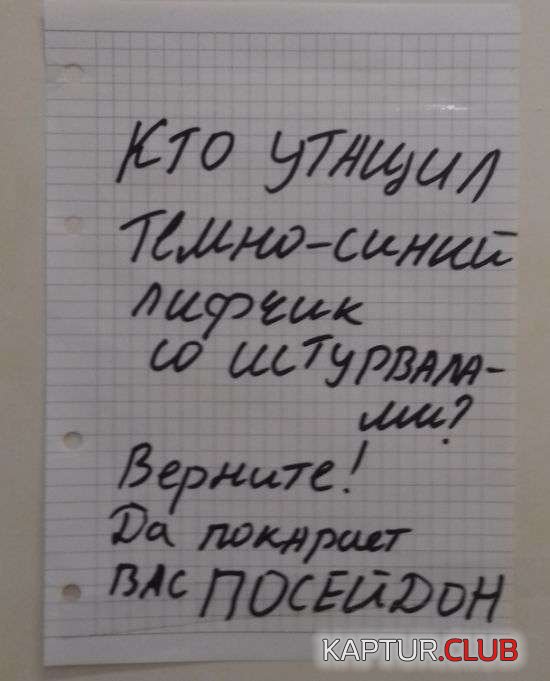 КТО УТАЩИЛ
ТЕМНО-СИНИЙ
ЛИФЧИК
СО ШТУРВАЛА-
МИ?
Верните!
Да покарает
ВАС ПОСЕЙДОН
KAPTUR.CLUB